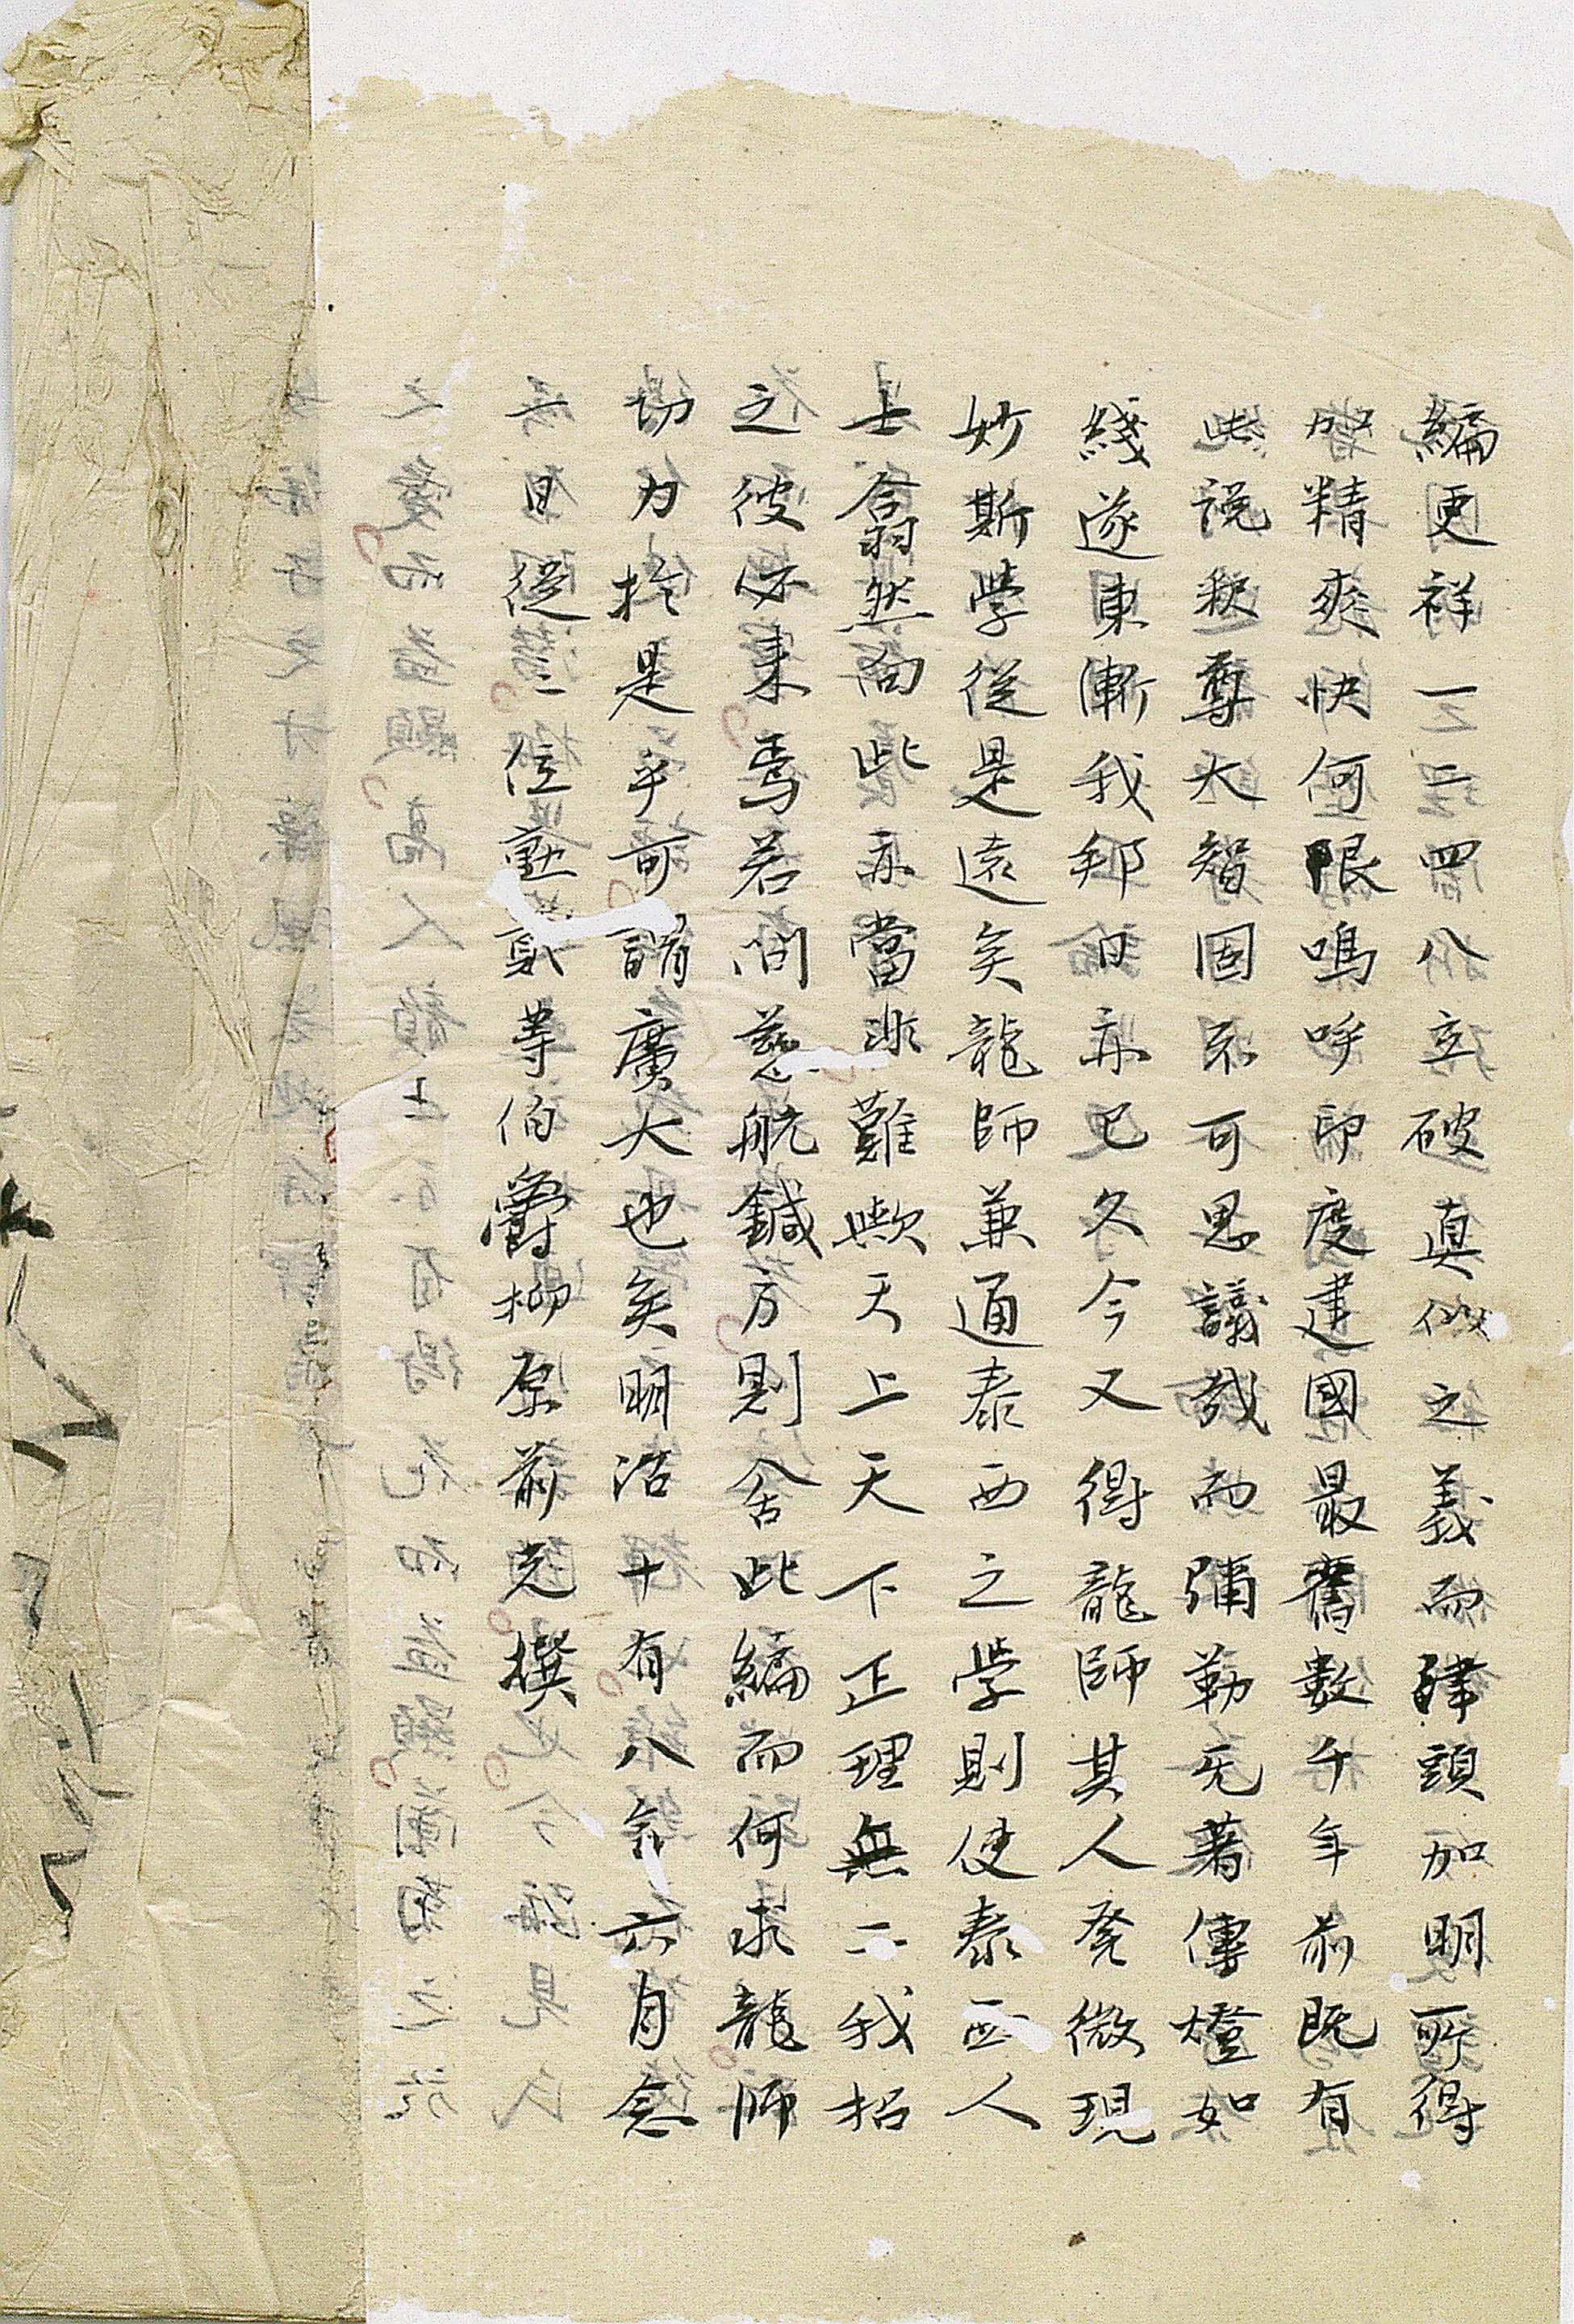 編更祥三二四八立破真似之義而肄頭加明所得
加精爽快何限嗚呼印度建國最舊數千年前既有
此說釈尊大智固不可思議哉而彌勒旡著傳燈如
綫遂東漸我邦日亦已久今又得龍師其人発微現
妙斯學從是遠矣龍師兼通泰西之學則使泰西人
士翕然向此亦當非難歟天上天下正理無二我招
之彼必来焉若問慈航鍼方則舍此編而何求龍師
功力於是乎可謂廣大也矣明治十有八年六月念
一日從二位勲等伯爵柳原前光撰